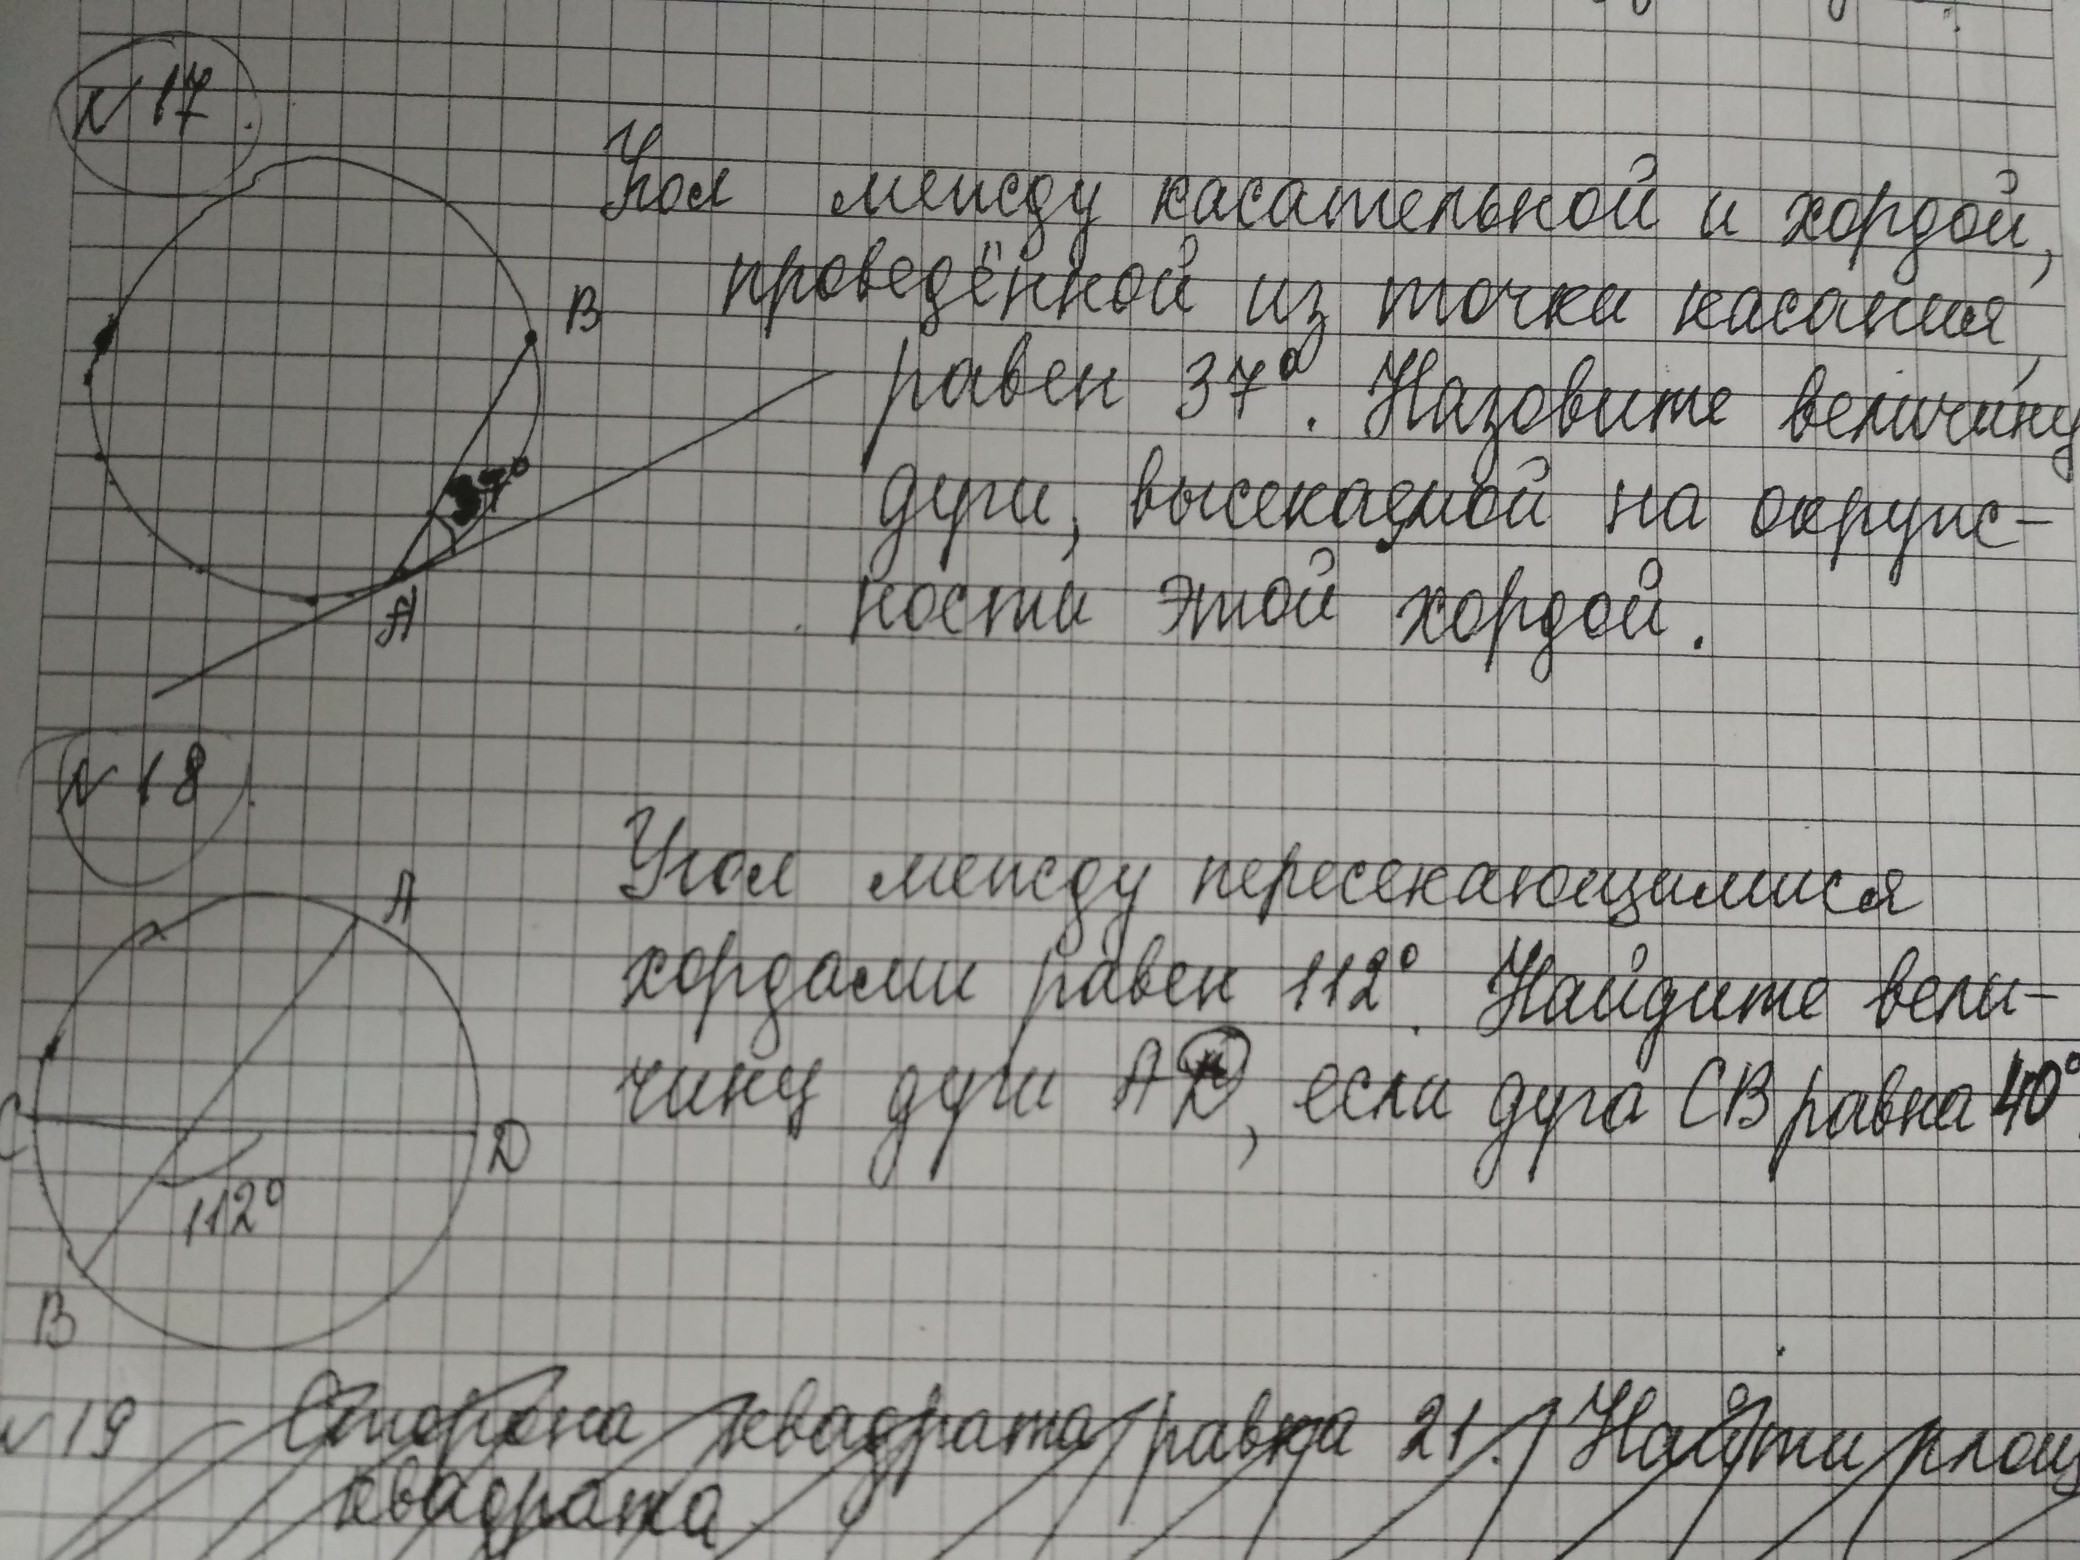 № 17.
Угол между касательной и хордой,
проведённой из точки касания,
равен 37°. Назовите величину
дуги, высекаемой на окруж-
ности этой хордой.
B
37°
A
№ 18.
Угол между пересекающимися
хордами равен 112°. Найдите вели-
чину дуги AD, если дуга CB равна 40°.
A
C
D
112°
B
№ 19 Сторона квадрата равна 21. Найти площ
квадрата